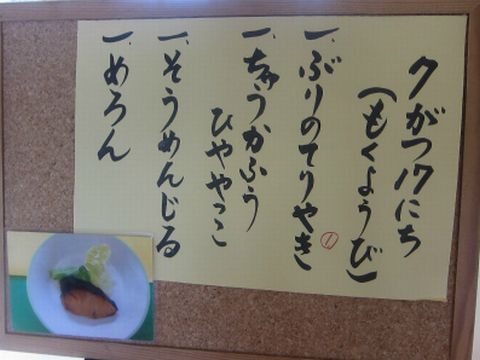 7がつ17にち
(もくようび)
一、ぶりのてりやき
①
一、ちゅうかふう
ひややっこ
一、そうめんじる
一、めろん